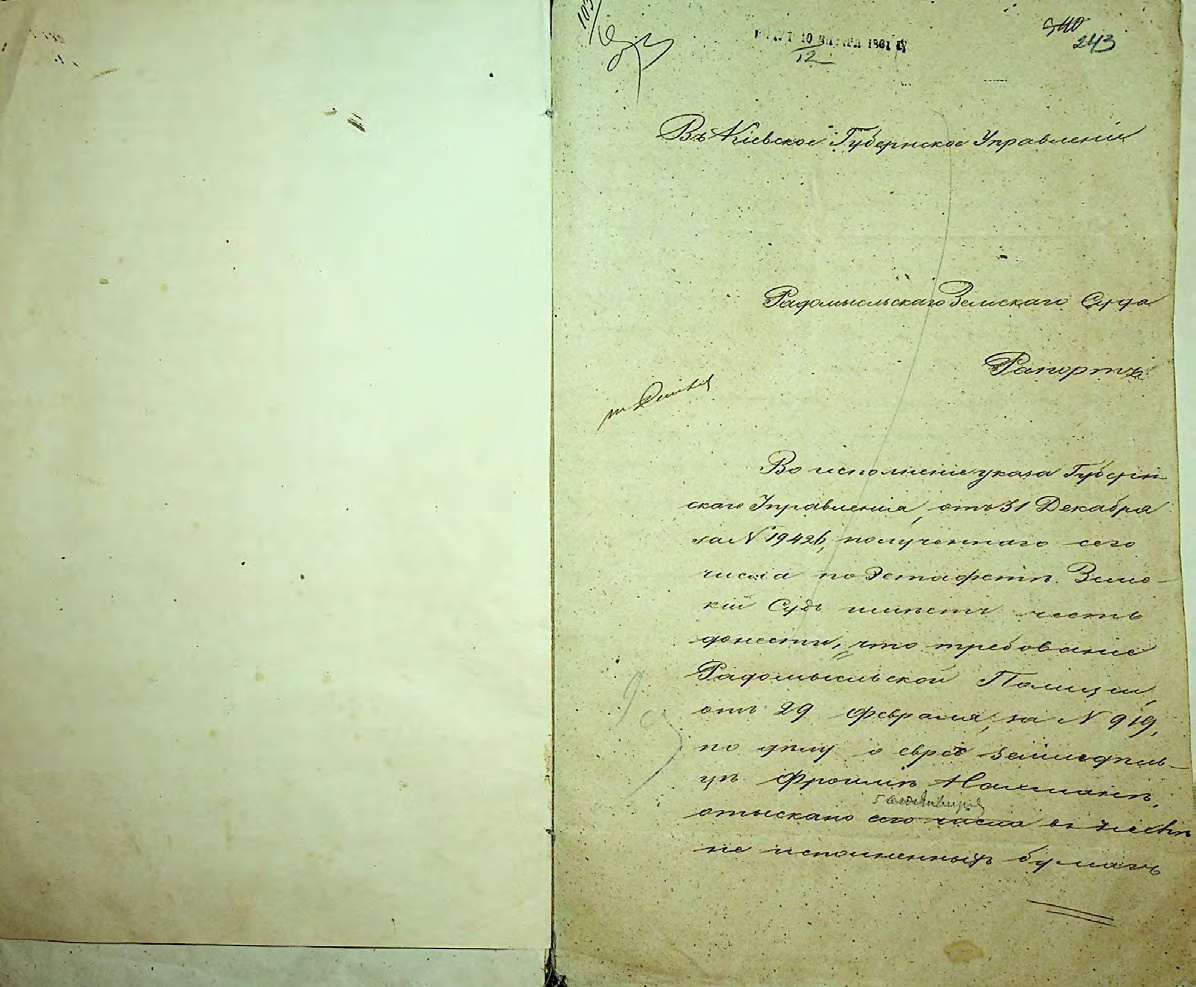 10 Января 1861
12
243
Въ Кіевское Губернское Управленіе
Радомысльскаго Земскаго Суда
Рапортъ
Во исполненіе указа Губерн-
скаго Управленія, отъ 31 Декабря
за № 19426, полученнаго сего
числа по Эстафетѣ. Земс-
кій Судъ имѣетъ честь
донести, что требованіе
Радомысльской Полиціи,
отъ 29 февраля, за № 919,
по дѣлу о евреѣ земледѣль-
цѣ Фроимѣ Нахманѣ,
отыскано сего числа въ числѣ
не исполненныхъ бумагъ